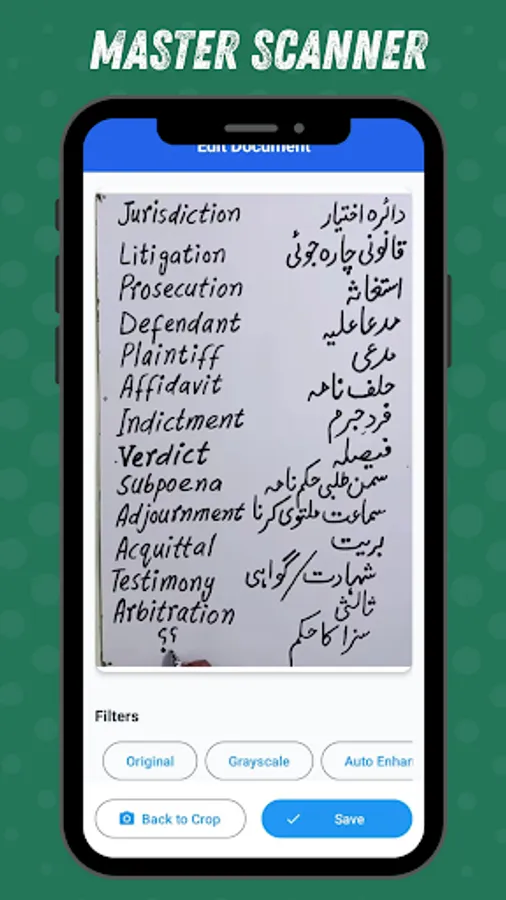 MASTER SCANNER
Edit Document
Jurisdiction دائرہ اختیار
Litigation قانونی چارہ جوئی
Prosecution استغاثہ
Defendant مدعا علیہ
Plaintiff مدعی
Affidavit حلف نامہ
Indictment فردِ جرم
Verdict فیصلہ
Subpoena سمن طلبی حکم نامہ
Adjournment سماعت ملتوی کرنا
Acquittal بریت
Testimony شہادت/گواہی
Arbitration ثالثی
؟؟ سزا کا حکم
Filters
Original Grayscale Auto Enhan
Back to Crop Save